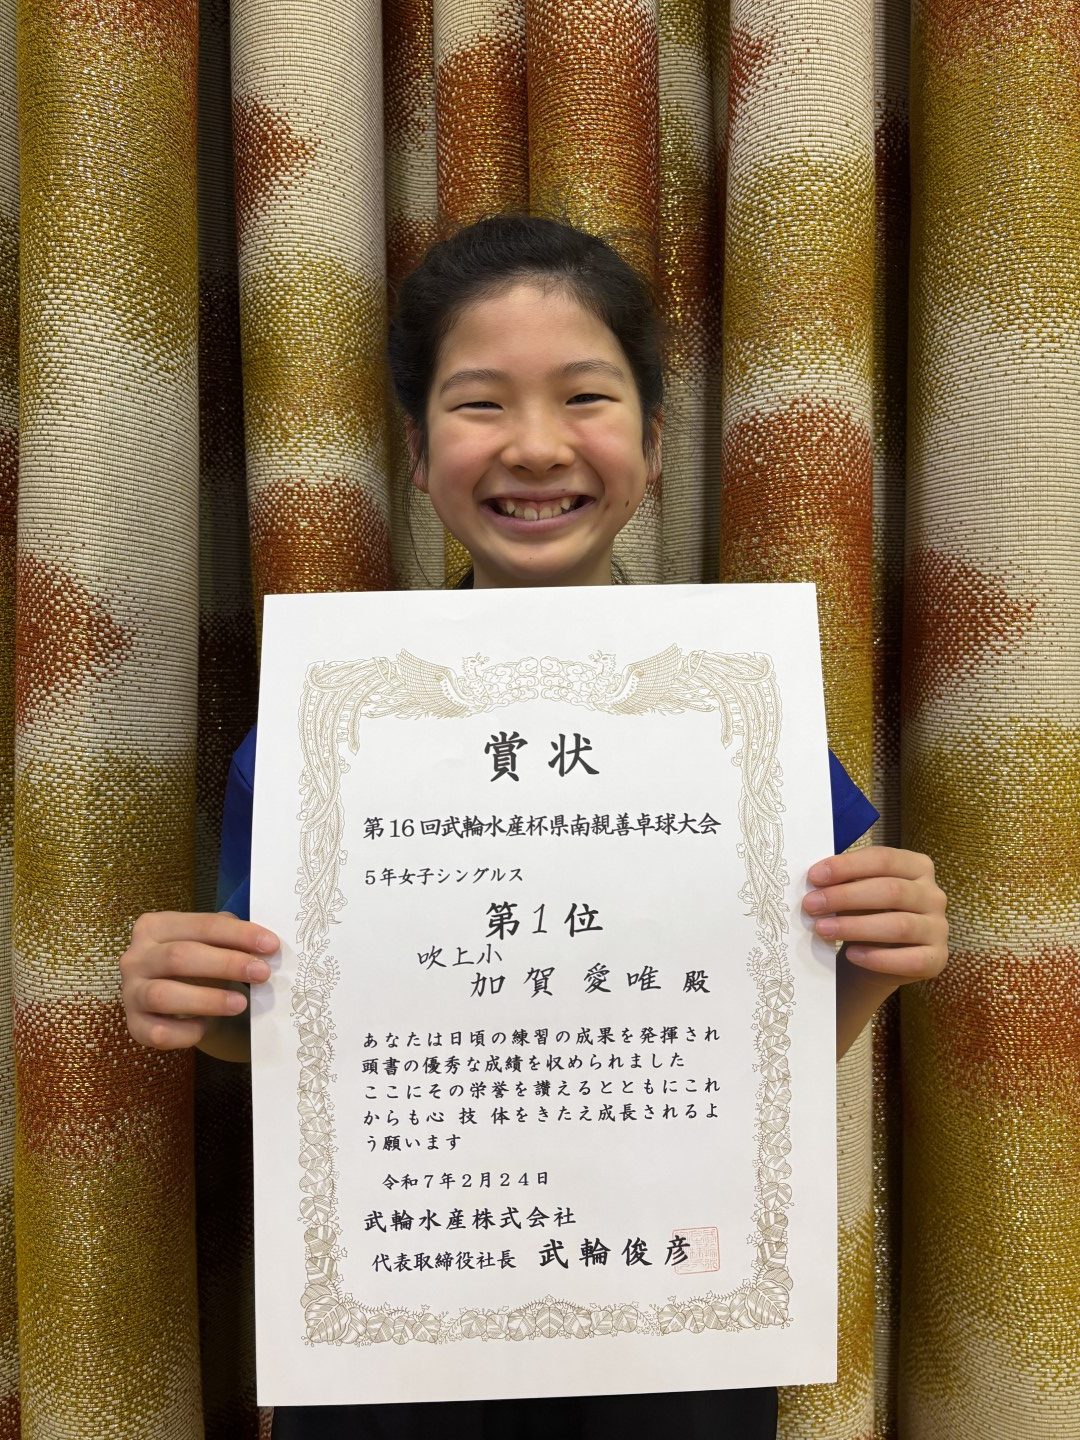 賞状
第16回武輪水産杯県南親善卓球大会
5年女子シングルス
第1位
吹上小
加賀愛唯 殿
あなたは日頃の練習の成果を発揮され
頭書の優秀な成績を収められました
ここにその栄誉を讃えるとともにこれ
からも心 技 体をきたえ成長されるよ
う願います
令和7年2月24日
武輪水産株式会社
代表取締役社長 武輪俊彦